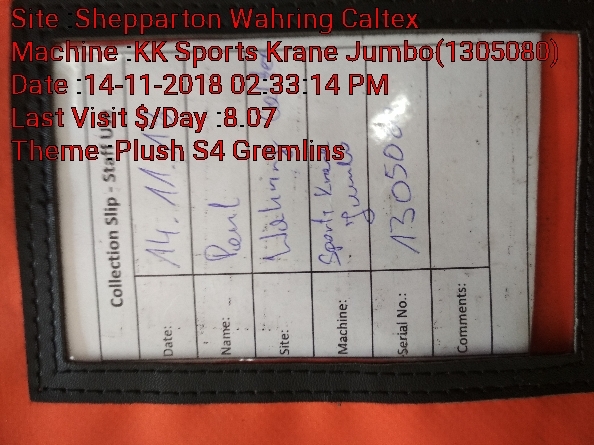 Site :Shepparton Wahring Caltex
Machine :KK Sports Krane Jumbo(1305080)
Date :14-11-2018 02:33:14 PM
Last Visit $/Day :8.07
Theme :Plush S4 Gremlins
Collection Slip - Staff U
Date: 14.11.1
Name: Paul
Site: Wahring
Machine: Sports Krane
Jumbo
Serial No.: 130508
Comments: